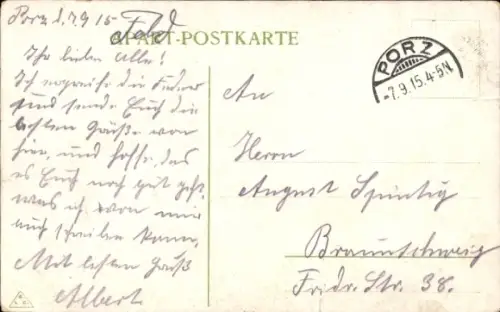 Porz d. 7.9.15
Feld
APART-POSTKARTE
PORZ
-7.9.15.4-5N
Ihr lieben Alle!
Ich ergreife die Feder
und sende Euch die
besten Grüße von
hier, und hoffe, das
es Euch noch gut geht,
was ich von mir
auch schreiben kann.
Mit besten Gruß
Albert
An
Herrn
August
Braunschweig
Fridr. Str. 38.